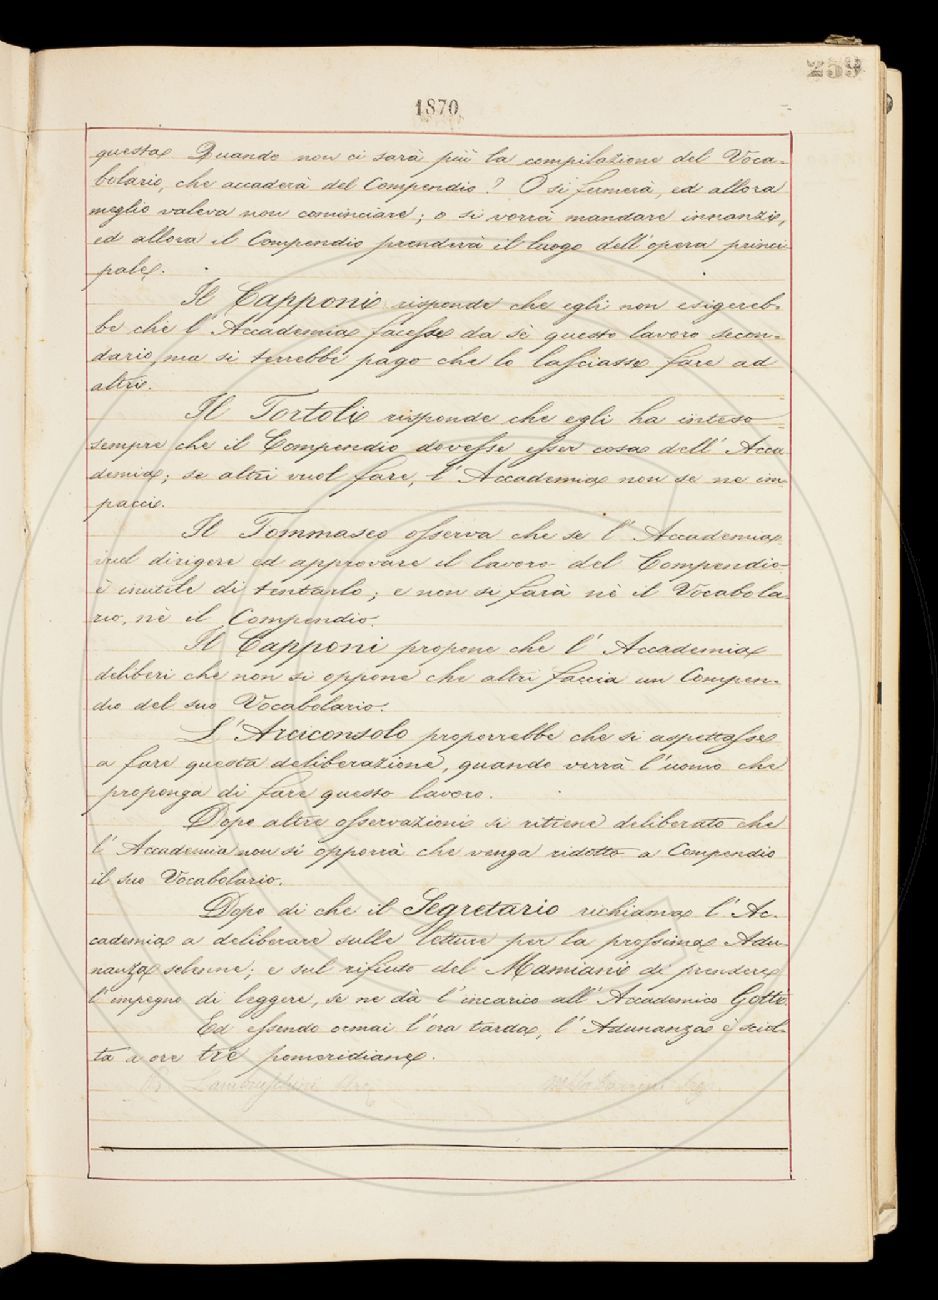 259
1870
questa. Quando non ci sarà più la compilazione del Voca-
bolario, che accaderà del Compendio? O si fermerà, ed allora
meglio valeva non cominciare; o si vorrà mandare innanzi,
ed allora il Compendio prenderà il luogo dell'opera princi-
pale.
Il Capponi risponde che egli non esigereb-
be che l'Accademia facesse da sè questo lavoro secon-
dario, ma si terrebbe pago che lo lasciasse fare ad
altri.
Il Tortoli risponde che egli ha inteso
sempre che il Compendio dovesse esser cosa dell'Acca
demia; se altri vuol fare, l'Accademia non se ne im-
pacci.
Il Tommaseo osserva che se l'Accademia
vuol dirigere ed approvare il lavoro del Compendio
è inutile di tentarlo; e non si farà nè il Vocabola-
rio, nè il Compendio.
Il Capponi propone che l'Accademia
deliberi che non si oppone che altri faccia un Compen-
dio del suo Vocabolario.
L'Arciconsolo proporrebbe che si aspettasse
a fare questa deliberazione, quando verrà l'uomo che
proponga di fare questo lavoro.
Dopo altre osservazioni si ritiene deliberato che
l'Accademia non si opporrà che venga ridotto a Compendio
il suo Vocabolario.
Dopo di che il Segretario richiama l'Ac-
cademia a deliberare sulle letture per la prossima Adu-
nanza solenne; e sul rifiuto del Mamiani di prendere
l'impegno di leggere, se ne dà l'incarico all'Accademico Gotti.
Ed essendo ormai l'ora tarda, l'Adunanza è sciol-
ta a ore tre pomeridiane.
R. Lambruschini Arc.